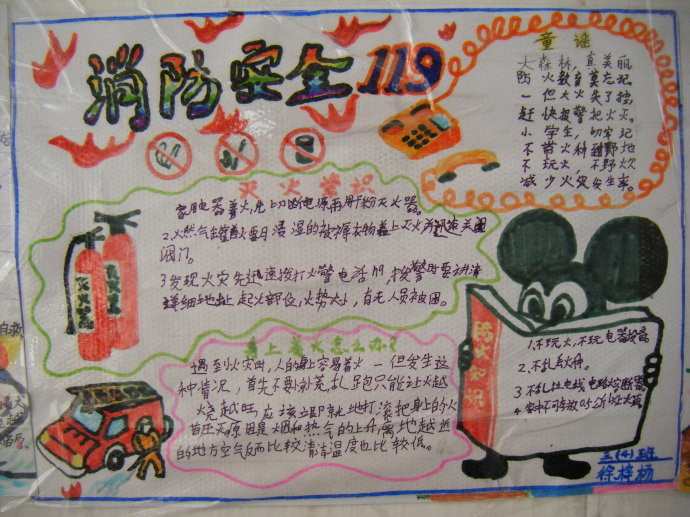 消防安全119
童谣
大森林，真美丽
防火教育莫忘记
一但大火失了控
赶快报警把火灭
小学生，切牢记
不带火种到野地
不玩火，不野炊
减少火灾发生率。
灭火常识
家用电器着火，先切断电源再用干粉灭火器。
2.天然气
阀门。
3发现火灾先迅速拨打火警电话119，报警时要讲清
详细地址 起火部位，火势大小，有无人员被困。
灭火器
灭火器
身上着火怎么办？
遇到火灾时，人的身上容易着火 一但发生这
种情况，首先不要扑，乱跑只能让火越
烧越旺 应该立即就地打滚把身上的火
原因是烟和热气的上升离地越近
的地方空气而比较清温度也比较低。
防火知识
1.不玩火，不玩电器设备
2.不乱丢火种。
3.不乱扯电线
三（4）班
徐梓杨